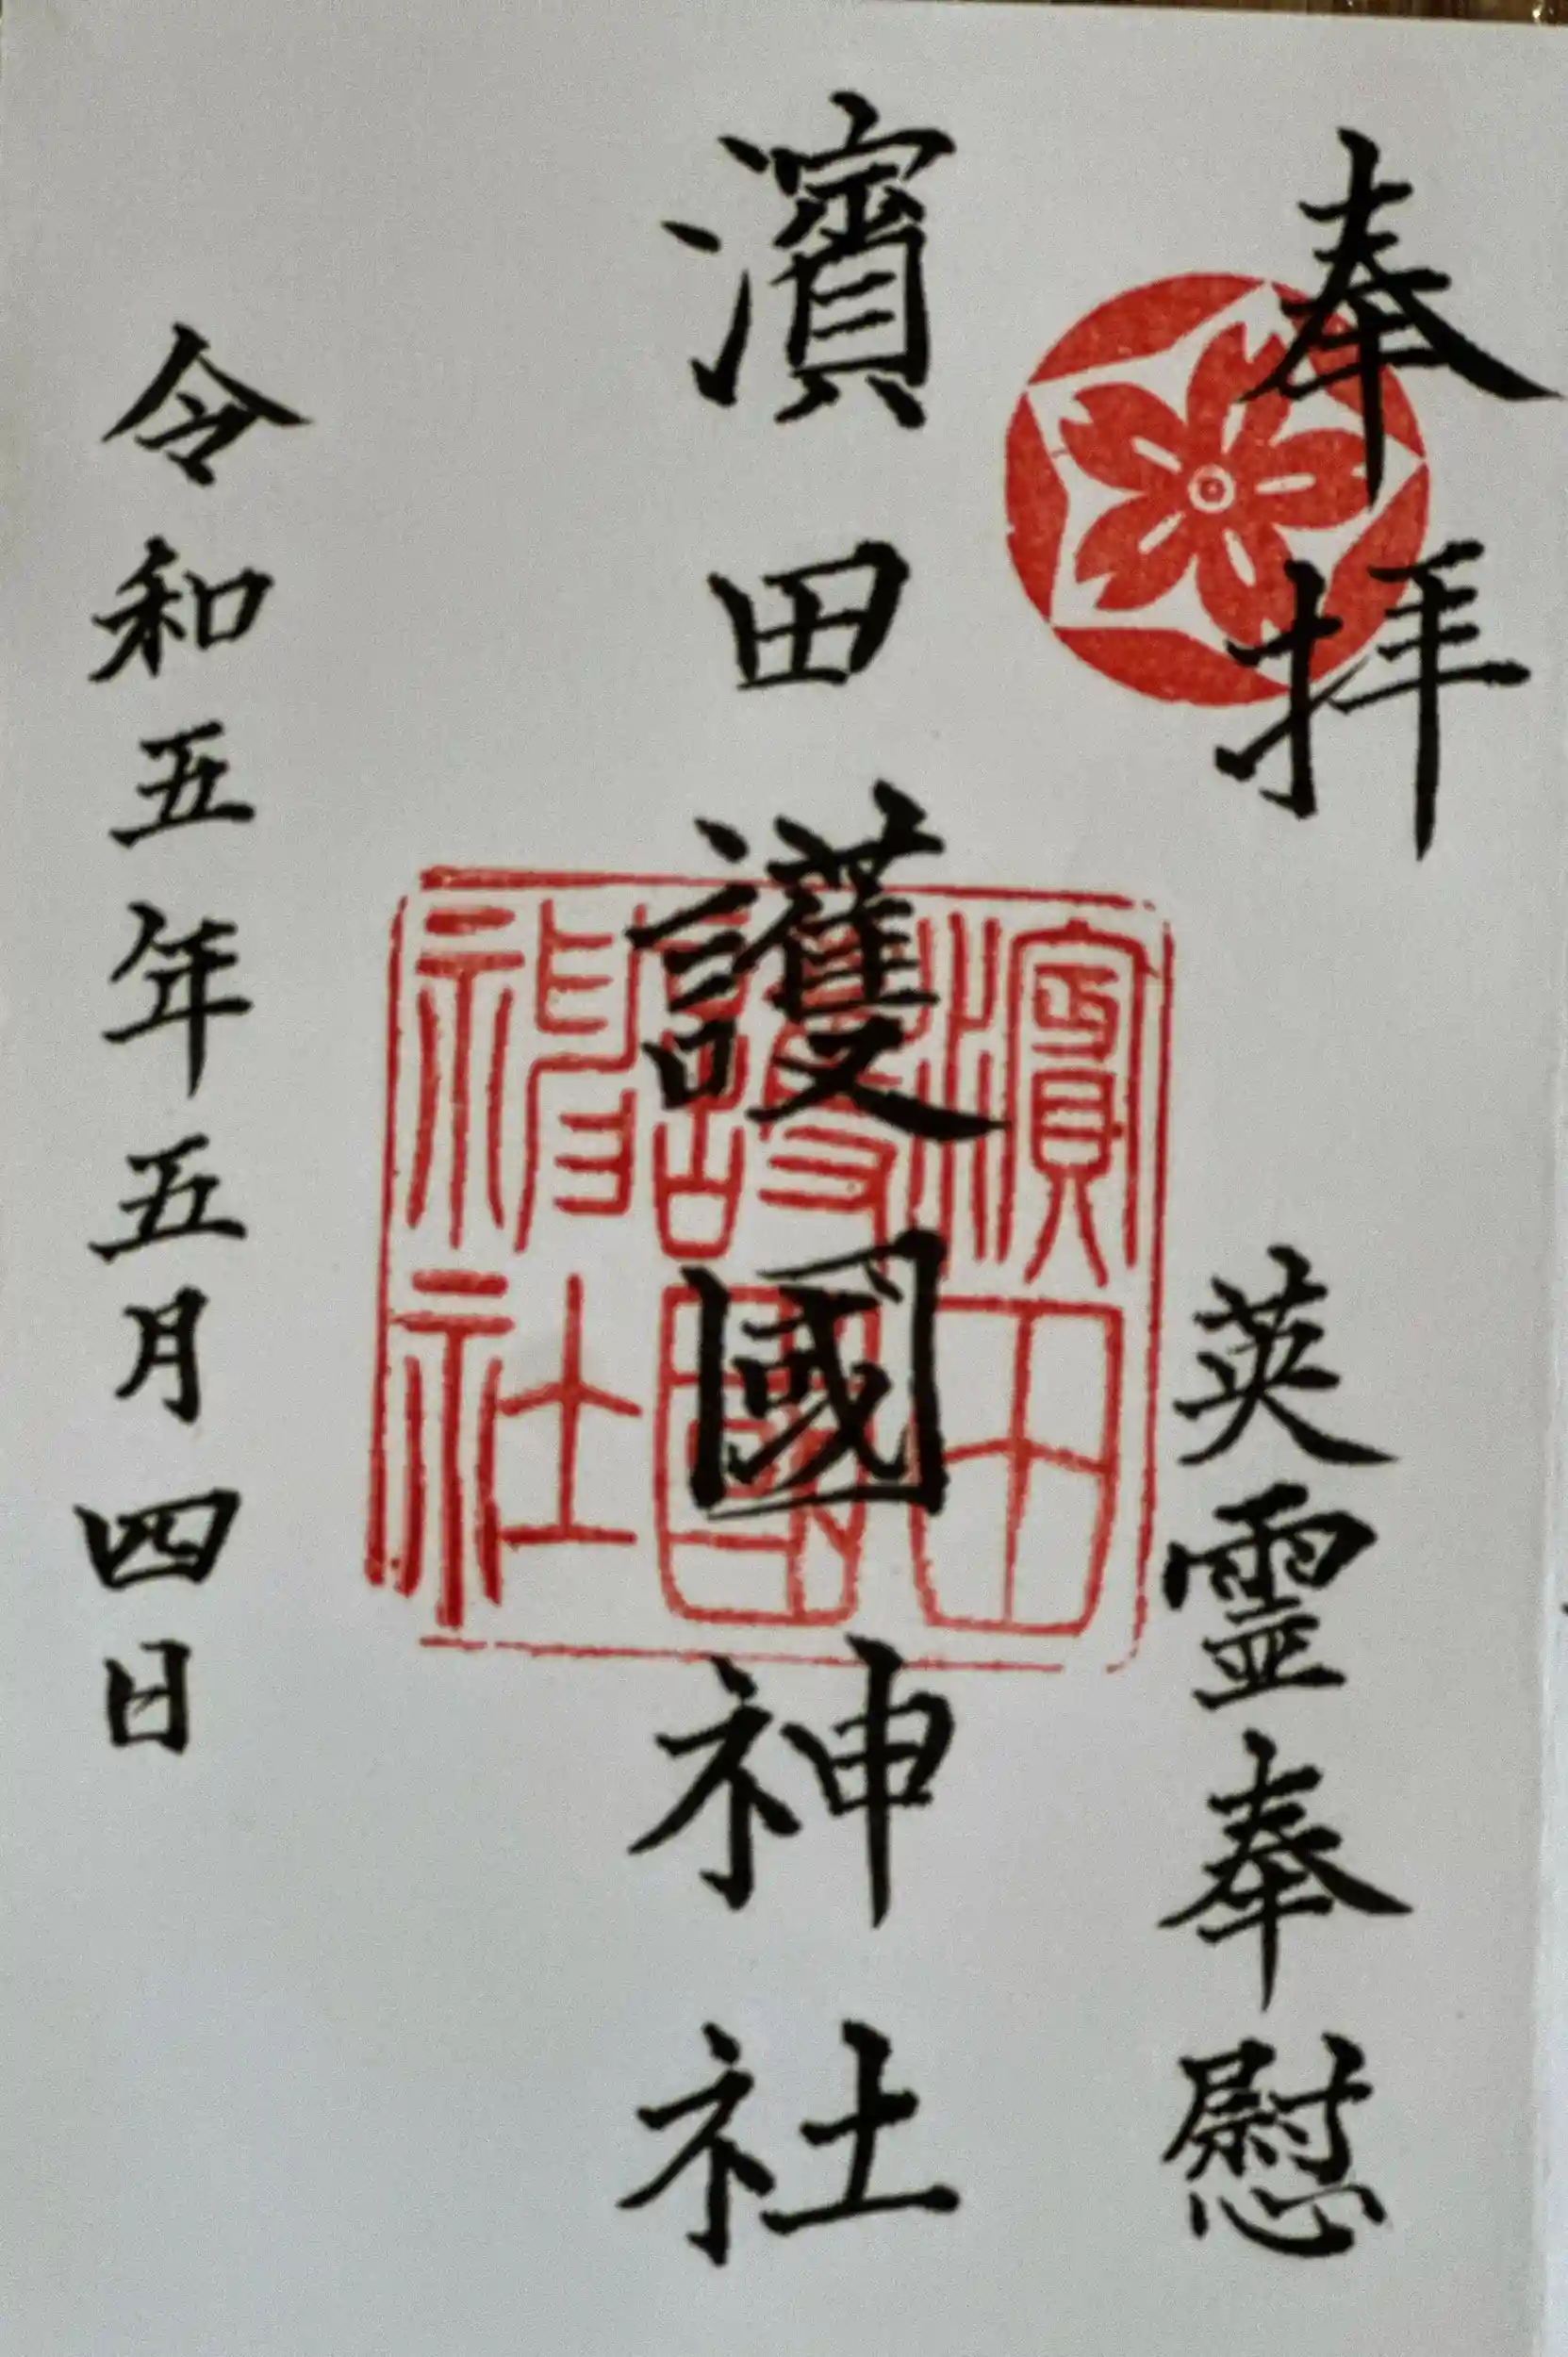 奉拝
英霊奉慰
濱田護國神社
濱田
護國
神社
令和五年五月四日